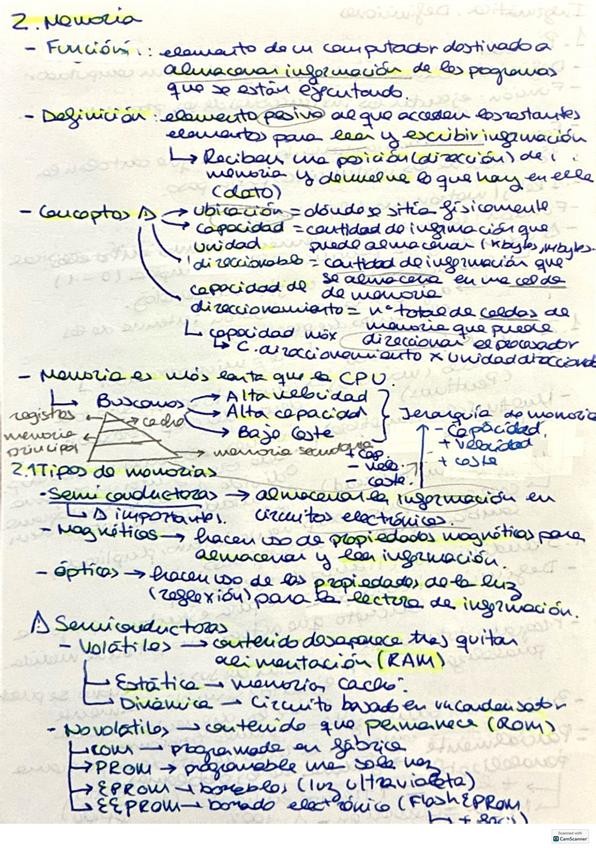 2. Memoria
- Función: elemento de un computador destinado a
almacenar información de los programas
que se están ejecutando.
- Definición: elemento pasivo al que acceden los restantes
elementos para leer y escribir información
↳ Reciben una posición (dirección) de
memoria y devuelve lo que hay en ella
(dato)
- Conceptos → ubicación = dónde se sitúa físicamente
→ capacidad = cantidad de información que
puede almacenar (kbytes, mbytes.
unidad
direccionable = cantidad de información que
se almacena en una celda
de memoria
capacidad de
direccionamiento = nº total de celdas de
memoria que puede
direccionar el procesador
↳ capacidad máx
↳ C. direccionamiento x unidad direccionable
- Memoria es más lenta que la CPU.
↳ Buscamos → Alta velocidad
→ Alta capacidad
→ Bajo coste
Jerarquía de memoria
registros
cache
memoria
principal
memoria secundaria
+ cap.
- velo.
- coste.
- Capacidad.
+ velocidad.
+ coste
2.1 Tipos de memorias
- Semiconductoras → almacenar la información en
circuitos electrónicos.
↳ importantes.
- Magnéticas → hacen uso de propiedades magnéticas para
almacenar y leer información.
- Ópticas → hacen uso de las propiedades de la luz
(reflexión) para la lectura de información.
Semiconductoras
- Volátiles → contenido desaparece tras quitar
alimentación (RAM)
Estática → memoria caché.
Dinámica → Circuito basado en un condensador
- No volátiles → contenido que permanece (ROM)
ROM → programada en fábrica
PROM → programable una sola vez
EPROM → borrables (luz ultravioleta)
EEPROM → borrado electrónico (Flash EPROM
Scanned with
CamScanner